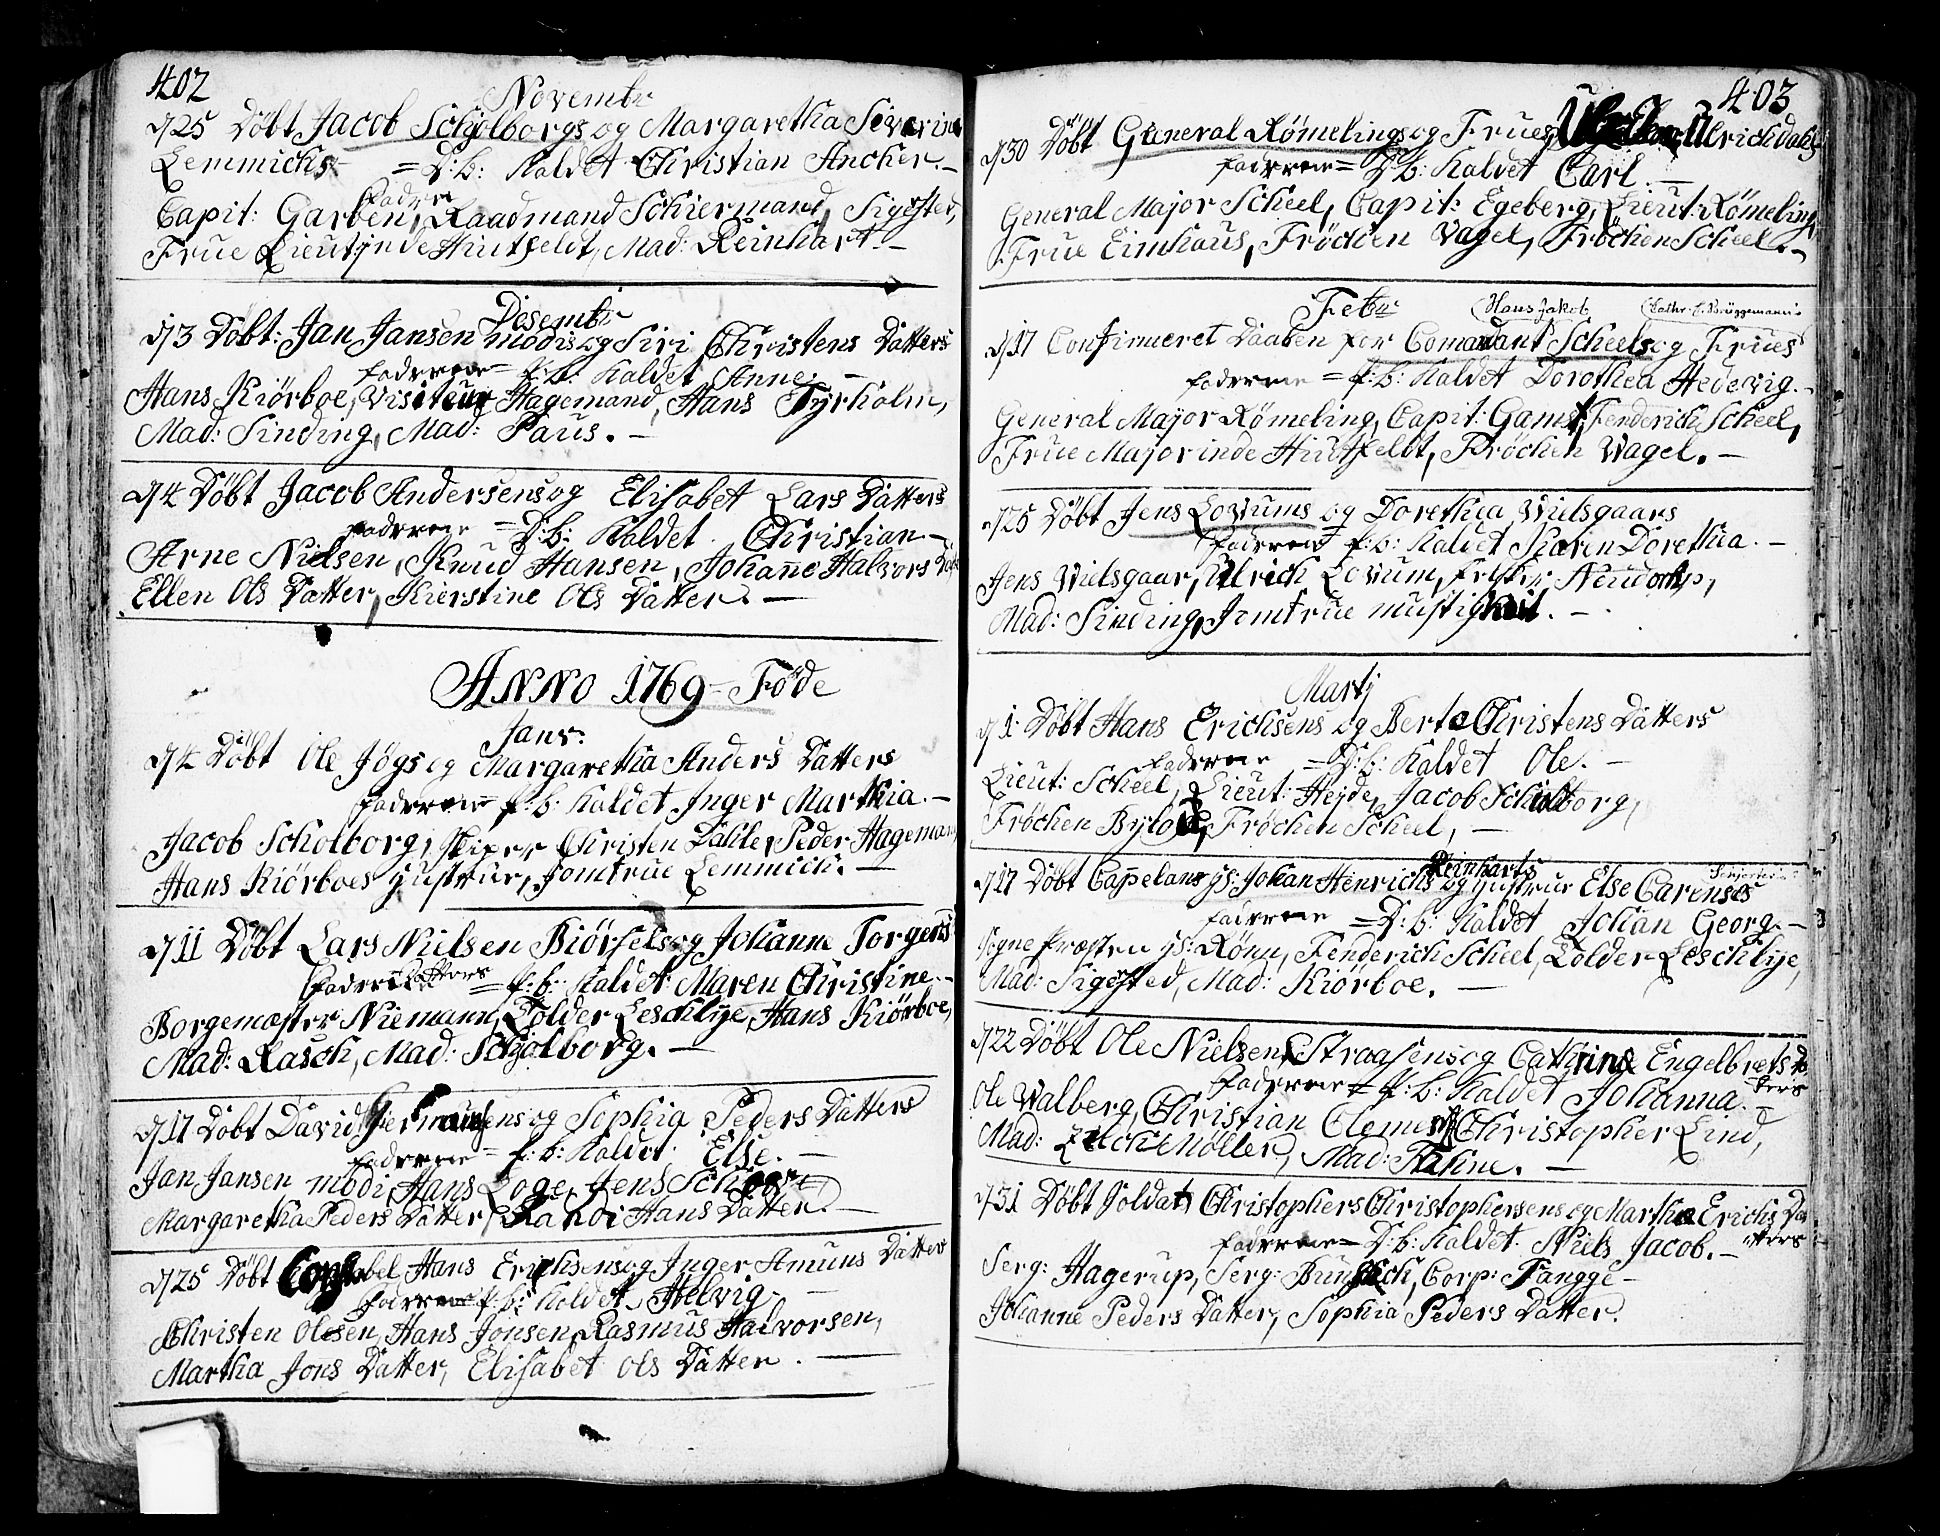 402
Novembr
d/25 Döbt Jacob Schjolborgs og Margaretha Severine
Lemmichs = D: b: Kaldet Christian Ancher. –
Faderne
Capit: Garben, Raadmand Schiermand, Sigested,
Frue Lieutjnde Huitfeldt, Mad: Reinhart. –
Desembr
d/3 Döbt: Jan Jansen modis og Siri Christens Datters
faderene = p: b: Kaldet Anne. –
Hans Kiörboe, Visiteur Hagemand, Hans Tyrholm,
Mad: Sinding, Mad: Paus. –
d/4 Döbt Jacob Andersens og Elisabet Lars Datters
faderene = D: b: Kaldet Christian –
Arne Nielsen, Knud Hansen, Johane Halvors Dat
Ellen Ols Datter, Kierstine Ols Datter. –
ANNO 1769 = Föde
Janv:
d/4 Döbt Ole Jögs og Margaretha Anders Datters
faderene p: b: Kaldet Inger Marthia. –
Jacob Scholborg, skiper Christen Dahle, Peder Hageman,
Hans Kiörboes Hustrue, Jomfrue Lemmich. –
d/11 Döbt Lars Nielsen Biörsels og Johanne Torgers
Datters
faderene = p: b: Kaldet Maren Christine. –
Borgemester Niemann, Tolder Leschlye, Hans Kiörboe,
Mad: Rasch, Mad: Schjolborg. –
d/17 Döbt David Hermansens og Sophia Peders Datters
faderene = p: b: Kaldet Else. –
Jan Jansen modi, Hans Loge, Jens
Margaretha Peders Datter, Randi Hans Datter. –
d/25 Döbt Constabel Hans Erichsens og Inger Amuns Datters
faderene p: b: Kaldet Helvig. –
Christen Olesen, Hans Jonsen, Rasmus Halvorsen,
Martha Jons Datter, Elisabet Ols Datter. –
403
d/30 Döbt General Römelings og Frues Ulrichdahls
faderene = D: b: Kaldet Carl. –
General Major Scheel, Capit: Egeberg, Lieut: Römeling,
Frue Eimhaus, Fröchen Vagel, Fröchen Scheel. –
Febr
Hans Jakob
Cathr. E. Brüggemann's
d/17 Confirmeret Daaben for Comandant Scheels og Frues
faderene = p: b: Kaldet Dorothea Hedevig. –
General Major Römeling, Capit: Gams, Fenderich Scheel,
Frue Majorinde Huitfeldt, Fröchen Vagel. –
d/25 Döbt Jens Lovums og Dorethea Wielsgaars
faderene p: b: Kaldet Karen Dorethea. –
Jens Wielsgaar, Ulrich Lovum, Feltskier Neudorp,
Mad: Sinding, Jomfrue mustigheit. –
Martj
d/1 Döbt Hans Erichsens og Berte Christens Datters
faderene = D: b: Kaldet Ole. –
Lieut: Scheel, Lieut: Hejde, Jacob Schiolborg,
Fröchen Bylov, Fröchen Scheel, –
Reinharts
d/17 Döbt Capelans Hs: Johan Henrichs og Hustrue Else Carenses
faderene = D: b: Kaldet Johan Georg. –
Sogne præsten Hs: Rönn, Fenderich Scheel, Tolder Leschlye,
Mad: Sigested, Mad: Kiörboe. –
d/22 Döbt Ole Nielsen Straasens og Cathrine Engelbrets Dat
ters
faderene = p: b: Kaldet Johanna. –
Ole Walberg, Christian Clemest, Christopher Lind,
Mad: Zilche Möller, Mad: Faline. –
d/31 Döbt Soldat Christophers Christophersens og Martha Erichs Da
tters
faderene = D: b: Kaldet Niels Jacob. –
Serg: Hagerup, Serg: Corp: Tangge –
Johanne Peders Datter, Sophia Peders Datter.